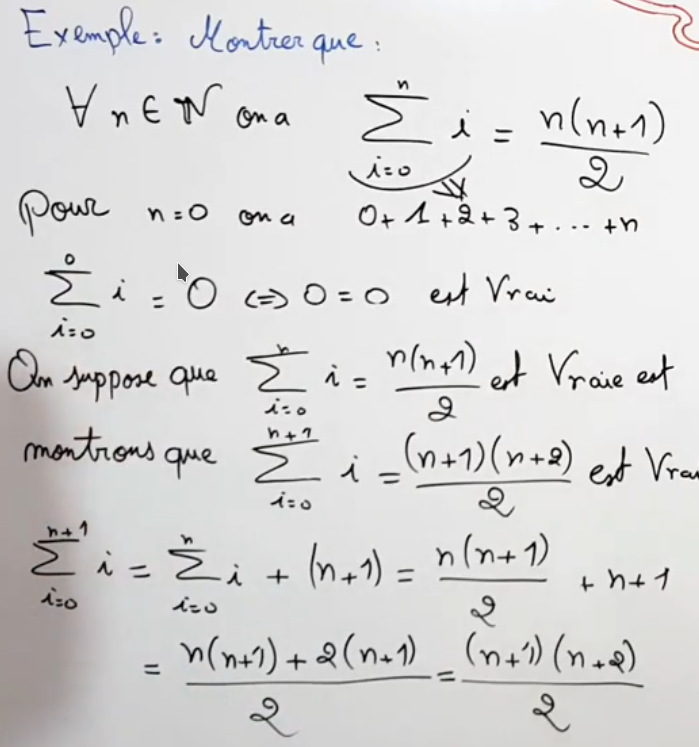 Exemple: Montrer que:
∀ n ∈ ℕ on a ∑_{i=0}^{n} i = n(n+1)/2
pour n=0 on a 0+1+2+3+...+n
∑_{i=0}^{0} i = 0 <=> 0=0 est Vrai
On suppose que ∑_{i=0}^{n} i = n(n+1)/2 est Vraie est
montrons que ∑_{i=0}^{n+1} i = (n+1)(n+2)/2 est Vrai
∑_{i=0}^{n+1} i = ∑_{i=0}^{n} i + (n+1) = n(n+1)/2 + n+1
= (n(n+1)+2(n+1))/2 = (n+1)(n+2)/2